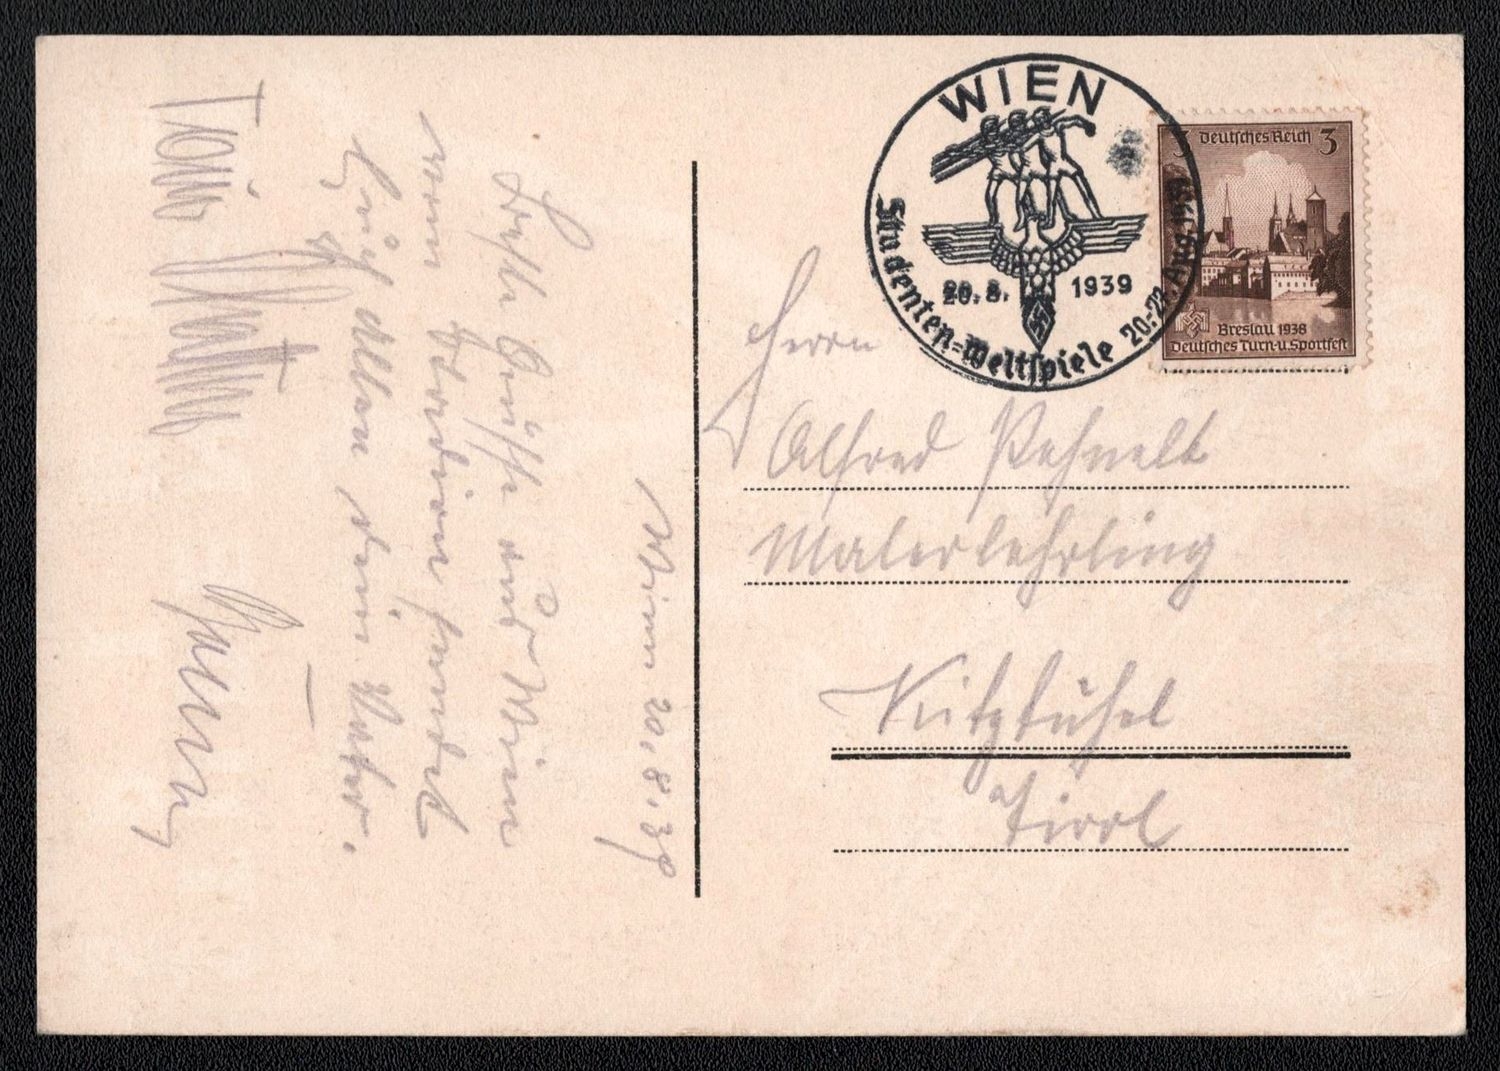 WIEN
20.8. 1939
Studenten=Weltspiele 20.-27. Aug. 1939
3 Deutsches Reich 3
Breslau 1938
Deutsches Turn-u.Sportfest
Herrn
Alfred Pehnelt
Malerlehrling
Kitzbühel
Tirol
Wien 20.8.39
Beste Grüße aus Wien
vom Stadion sendet
Euch allen dein Vater.